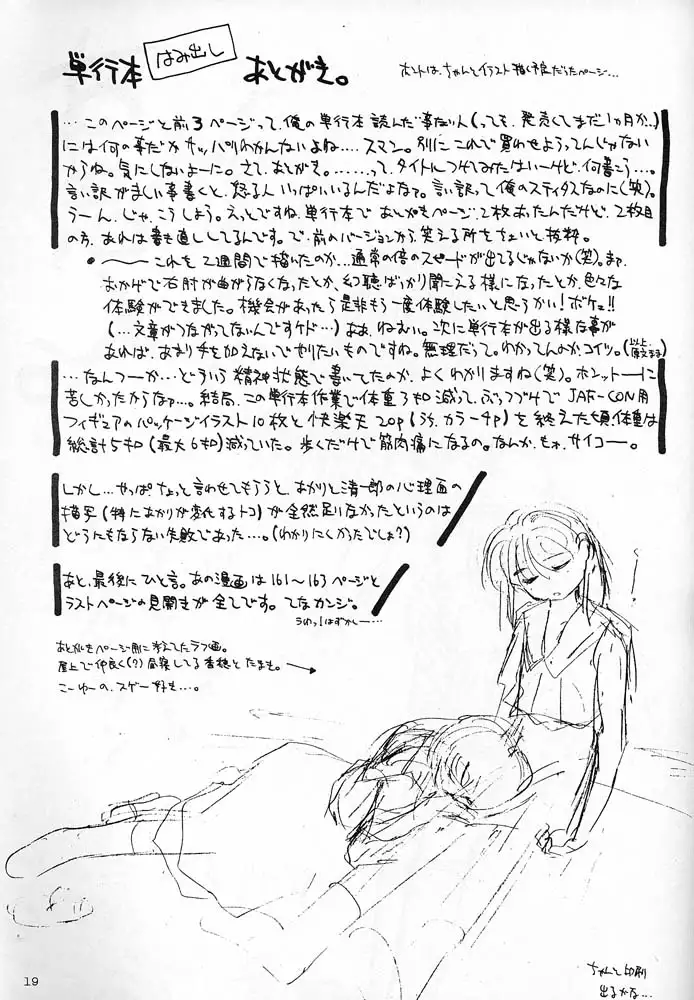 単行本 はみ出し あとがき。
ホントは、ちゃんとイラスト描く予定だったページ…
… このページと前3ページって、俺の単行本読んだ事ない人(っても、発売してまだ1ヵ月か‥)
には何の事だかサッパリわかんないよね…. スマン。別にこれで買わせようってんじゃない
からね。気にしないよーに。さて、あとがき。…….. って、タイトルつけてみたはいーけど、何書こう…。
言い訳がましい事書くと、怒る人いっぱいいるんだよなァ。言い訳って俺のステイタスなのに(笑)。
うーん、じゃ、こうしよう。えっとですね、単行本で あとがきページ、2枚あったんだけど、2枚目
の方、あれは書き直ししてるんです。で、前のバージョンから、笑える所をちょいと抜粋。
● これを2週間で描いたのか…通常の倍のスピードが出てるじゃないか(笑)。まァ、
おかげで右肘が曲がらなくなったとか、幻聴ばっかり聞こえる様になったとか、色々な
体験ができました。機会があったら是非もう一度体験したいと思うかい!ボケェ!!
(…文章がつながってないんですケド…)ああ、ねむい。次に単行本が出る様な事が
あれば、あまり手を加えないでやりたいものですね。無理だって。わかってんのか、コイツ。(以上、原文まま)
… なんつーか…どういう精神状態で書いてたのか、よくわかりますね(笑)。ホンットーに
苦しかったからなァ…。結局、この単行本作業で体重3キロ減って、ぶっつづけで JAF-CON用
フィギュアのパッケージイラスト10枚と快楽天20p(うち、カラー4p)を終えた頃、体重は
総計5キロ(最大6キロ)減っていた。歩くだけで筋肉痛になるの。なんか、もォ、サイコー。
しかし…やっぱ、ちょっと言わせてもらうと、あかりと清一郎の心理面の
描写(特にあかりが変化するトコ)が全然足りなかったというのは
どうにもならない失敗であった…。(わかりにくかったでしょ?)
あと、最後にひと言。あの漫画は161〜163ページと
ラストページの見開きが全てです。てなカンジ。
うわっ!はずかし…
あとがきページ用に考えてたラフ画。
屋上で仲良く(?)昼寝してる香穂とたまき。
こーゆーの、スゲー好き…。
ちゃんと印刷
出るかな…
19